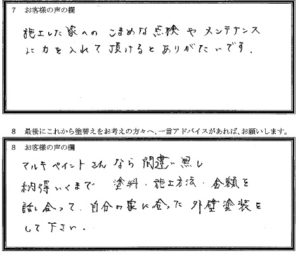 7 お客様の声の欄
施工した家へのこまめな点検やメンテナンス
に力を入れて頂けるとありがたいです。
8 最後にこれから塗替えをお考えの方々へ、一言アドバイスがあれば、お願いします。
8 お客様の声の欄
マルキペイントさんなら間違い無し
納得いくまで 塗料・施工方法・金額を
話し合って、自分の家に合った外壁塗装を
して下さい。